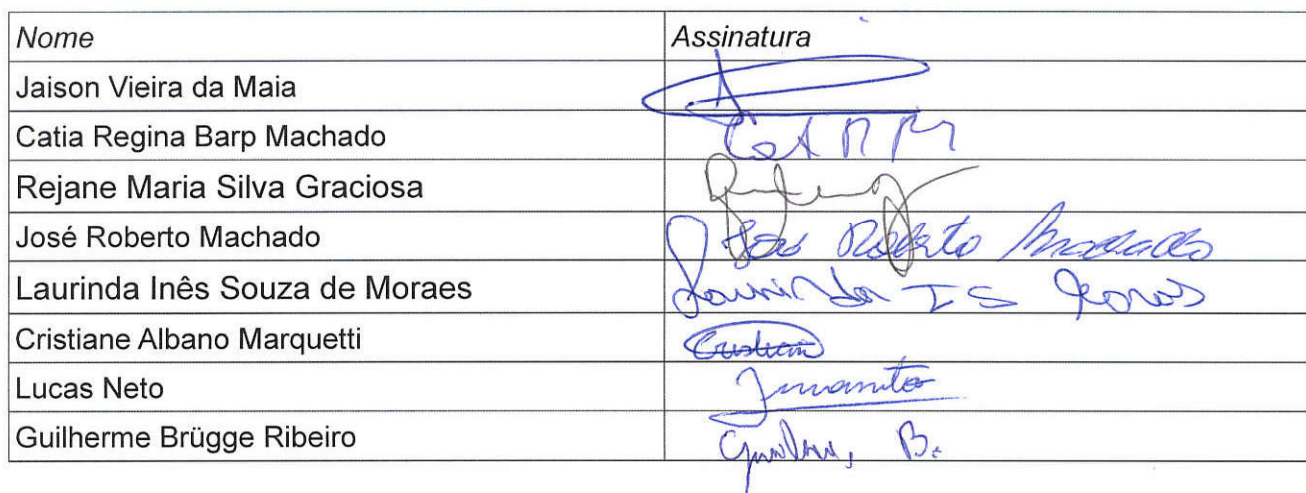 Nome Assinatura
Jaison Vieira da Maia
Catia Regina Barp Machado
Rejane Maria Silva Graciosa
José Roberto Machado José Roberto Machado
Laurinda Inês Souza de Moraes Laurinda I S
Cristiane Albano Marquetti
Lucas Neto
Guilherme Brügge Ribeiro B.